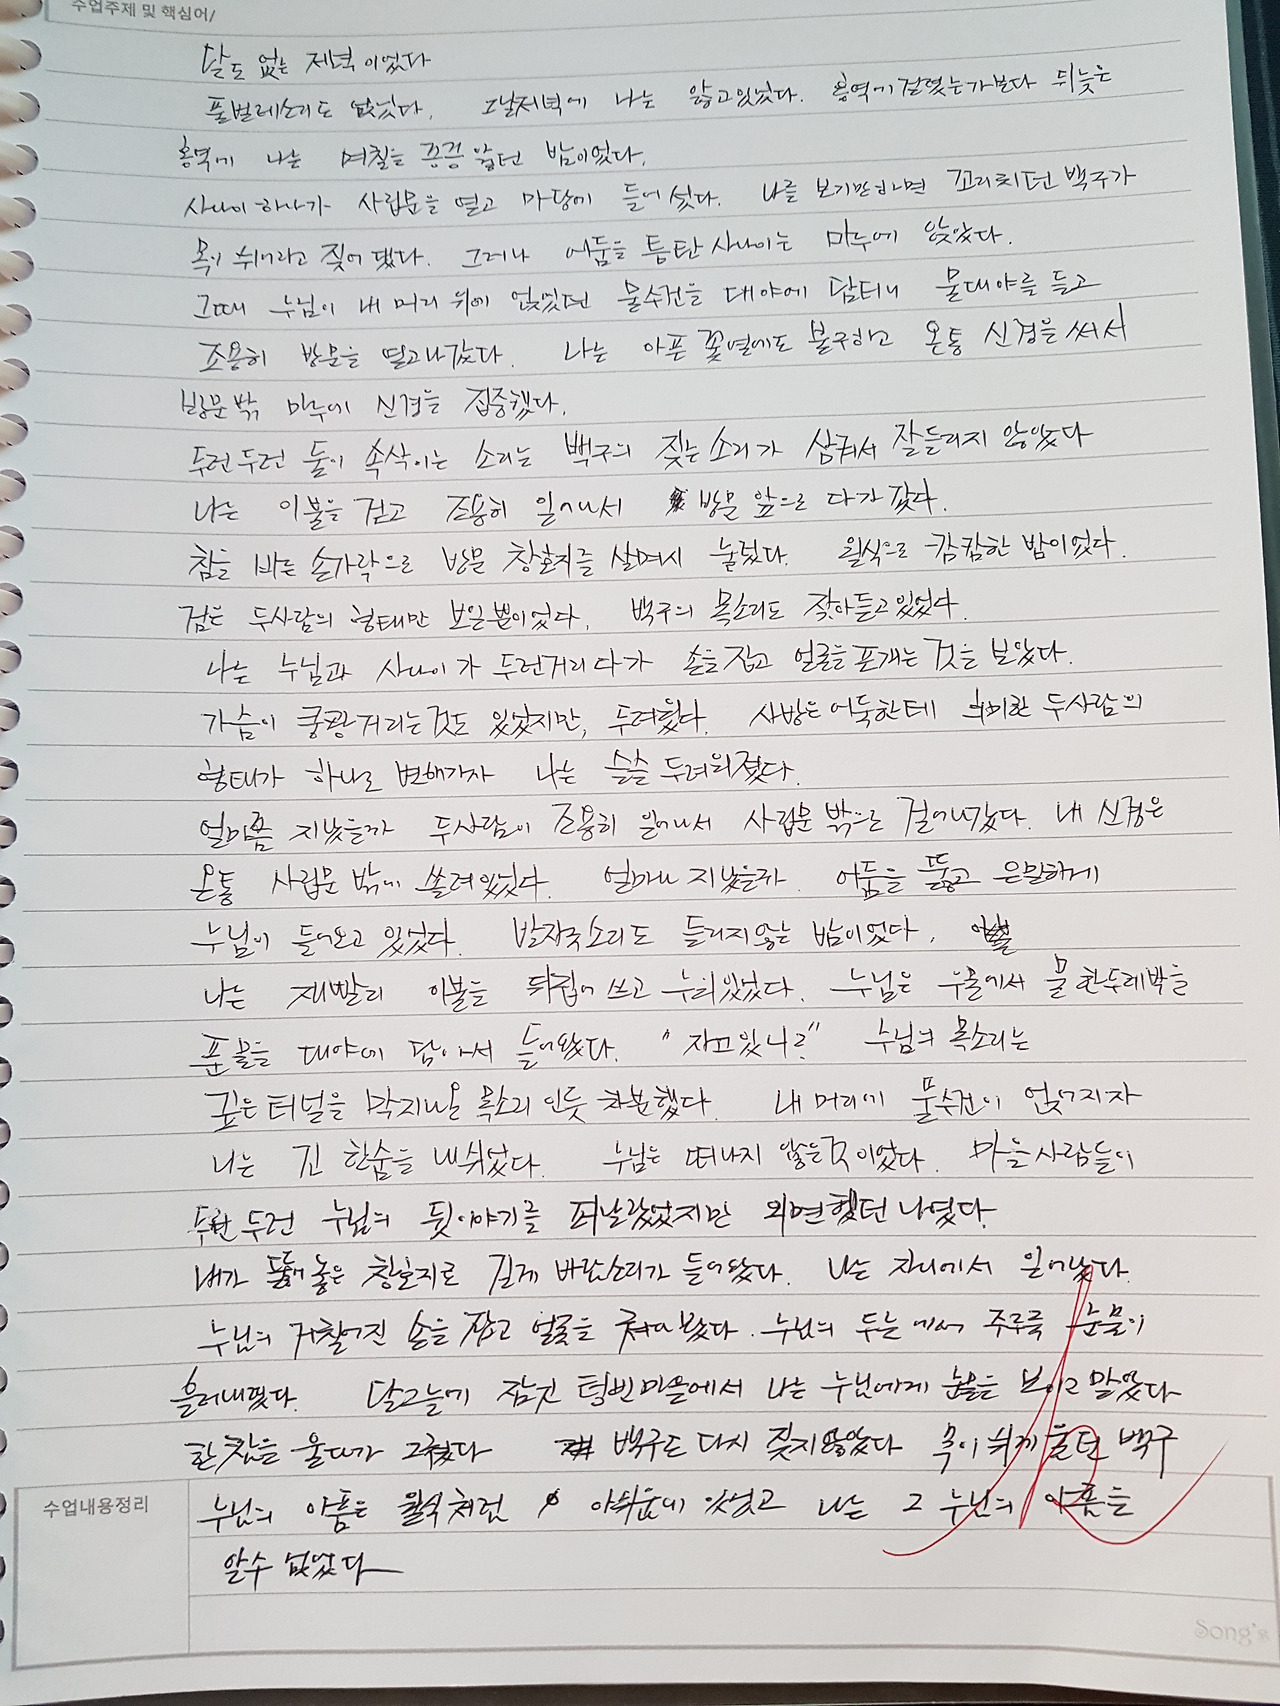 수업주제 및 핵심어/
달도 없는 저녁이었다
풀벌레소리도 없었다. 그날저녁에 나는 앓고있었다. 홍역에걸렸는가보다 뒤늦은
홍역에 나는 며칠을 끙끙 앓던 밤이었다.
사나이하나가 사립문을 열고 마당에 들어섰다. 나를 보기만하면 꼬리치던백구가
목이 쉬어라고 짖어댔다. 그러나 어둠을 틈탄사나이는 마루에 앉았다.
그때 누님이 내머리 위에 얹었던 물수건을 대야에 담더니 물대야를 들고
조용히 방문을 열고나갔다. 나는 아픈 꽃열에도 불구하고 온통 신경을써서
방문밖 마루에 신경을 집중했다.
두런두런 둘이 속삭이는 소리는 백구의 짖는소리가 삼켜서 잘들리지 않았다
나는 이불을 걷고 조용히 일어나서 방문 앞으로 다가갔다.
침을 바른 손가락으로 방문 창호지를 살며시 눌렀다. 월식으로 캄캄한 밤이었다.
검은 두사람의 형태만 보일뿐이었다. 백구의 목소리도 잦아들고있었다.
나는 누님과 사나이가 두런거리다가 손을잡고 얼굴을포개는 것을 보았다.
가슴이 쿵쾅거리는것도 있었지만, 두려웠다. 사방은어둑한테 희미한 두사람의
형태가 하나로 변해가자 나는 슬슬 두려워졌다.
얼마쯤 지났을까 두사람이 조용히 일어나서 사립문밖으로 걸어나갔다. 내 신경은
온통 사립문 밖에 쏠려있었다. 얼마나 지났을까. 어둠을 뚫고 은밀하게
누님이 들어오고 있었다. 발자국소리도 들리지않는 밤이었다.
나는 재빨리 이불을 뒤집어 쓰고 누워있었다. 누님은 우물에서 물한두레박을
푼물을 대야에 담아서 들어왔다. "자고있니?" 누님의 목소리는
깊은터널을 막지나온 목소리인듯 차분했다. 내머리에 물수건이 얹어지자
나는 긴 한숨을 내쉬었다. 누님은 떠나지 않을것이었다. 마을사람들이
두런두런 누님의 뒷이야기를 퍼날랐었지만 외면했던 나였다.
내가 뚫어놓은 창호지로 길게 바람소리가 들어왔다. 나는 자리에서 일어났다.
누님의 거칠어진 손을잡고 얼굴을 쳐다봤다. 누님의 두눈에서 주루룩 눈물이
흘러내렸다. 달그늘에 잠긴 텅빈마을에서 나는 누님에게 눈물을 보이고 말았다
한참을 울다가 그쳤다 백구도 다시 짖지않았다 목이쉬게 울던 백구
수업내용정리
누님의 아픔은 월식처럼 아쉬움에 있었고 나는 그 누님의 아픔을
알수 없었다
Song's